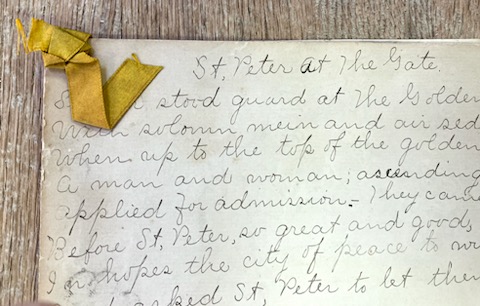 St, Peter at The Gate.
stood guard at The Golden
With solomn mein and air sed
When up to the top of the golden
A man and woman; ascending
applied for admission. They came
Before St, Peter, so great and good,
In hopes the city of peace to
asked St, Peter to let them